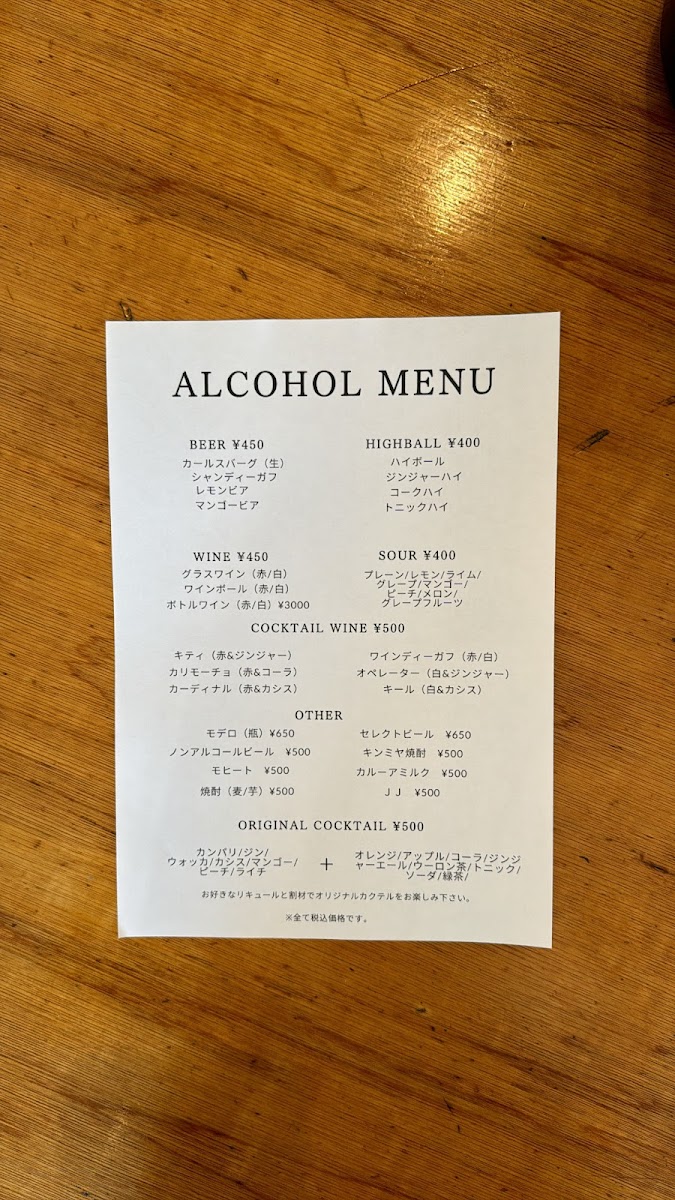 ALCOHOL MENU
BEER ¥450
カールスバーグ（生）
シャンディーガフ
レモンビア
マンゴービア
HIGHBALL ¥400
ハイボール
ジンジャーハイ
コークハイ
トニックハイ
WINE ¥450
グラスワイン（赤/白）
ワインボール（赤/白）
ボトルワイン（赤/白）¥3000
SOUR ¥400
プレーン/レモン/ライム/
グレープ/マンゴー/
ピーチ/メロン/
グレープフルーツ
COCKTAIL WINE ¥500
キティ（赤&ジンジャー）
カリモーチョ（赤&コーラ）
カーディナル（赤&カシス）
ワインディーガフ（赤/白）
オペレーター（白&ジンジャー）
キール（白&カシス）
OTHER
モデロ（瓶）¥650
ノンアルコールビール ¥500
モヒート ¥500
焼酎（麦/芋）¥500
セレクトビール ¥650
キンミヤ焼酎 ¥500
カルーアミルク ¥500
ＪＪ ¥500
ORIGINAL COCKTAIL ¥500
カンパリ/ジン/
ウォッカ/カシス/マンゴー/
ピーチ/ライチ
+
オレンジ/アップル/コーラ/ジンジ
ャーエール/ウーロン茶/トニック/
ソーダ/緑茶/
お好きなリキュールと割材でオリジナルカクテルをお楽しみ下さい。
※全て税込価格です。